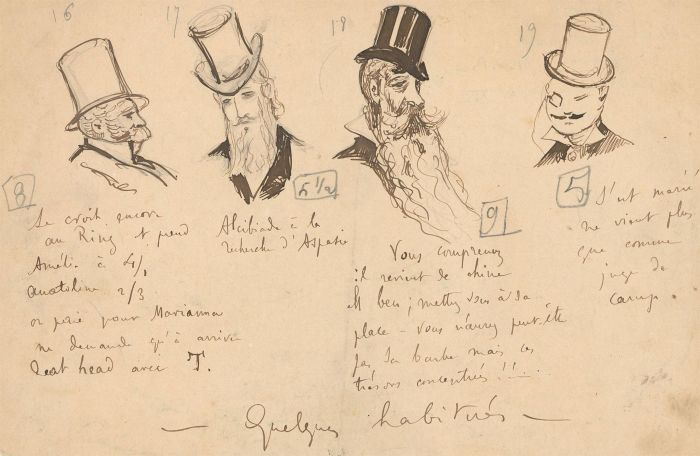 16
17
18
19
8
5 1/2
9
5
Se croit encore
au Ring et prend
Amélie à 4/1
Anatoline 2/3
on parie pour Marianna
ne demande qu'à arriver
Deat head avec T.
Alcibiade à la
recherche d'Aspasie
Vous comprenez
il revient de Chine
Eh bien ; mettez vous à sa
place - vous n'aurez peut-être
pas sa barbe mais ces
trésors concentrés !!...
S'est marié
ne vient plus
que comme
juge de
camp.
— Quelques habitués —